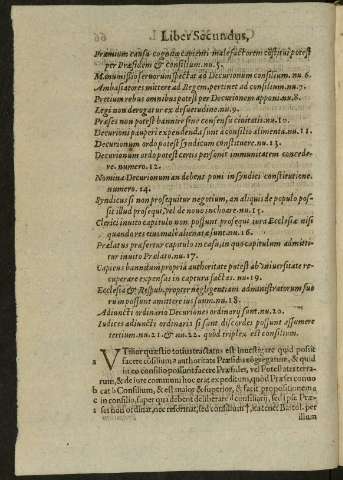 Liber Secundus,
Præmium causa cognita capienti malefactorem cõstitui potest
per Præsidem & consilium. nu. 5.
Manumissio servorum spectat ad Decurionum consilium. nu. 6.
Ambasiatores mittere ad Regem, pertinet ad consilium. nu. 7.
Pretium rebus omnibus potest per Decurionem apponi. nu. 8.
Legi non derogatur ex desuetudine. nu. 9.
Præses non potest bannire sine consensu civitatis. nu. 10.
Decurioni pauperi expendenda sunt à consilio alimenta. nu. 11.
Decurionum ordo potest syndicum constituere. nu. 13.
Decurionum ordo potest certis personis immunitatem concede-
re. numero. 12.
Nomina Decurionum an debent poni in syndici constitutione.
numero. 14.
Syndicus si non prosequitur negotium, an aliquis de populo pos-
sit illud prosequi, vel de novo inchoare. nu. 15.
Clerici invito capitulo non possunt prosequi iura Ecclesiæ nisi
quando res eius malè alienatæ sunt. nu. 16.
Prælatus præfertur capitulo in casu, in quo capitulum admitti-
tur invito Prælato. nu. 17.
Capiens bannitum propria authoritate potest ab vniversitate re-
cuperare expensas in captura factas. nu. 19.
Ecclesia & Respub. propter negligentiam administratorum suo
rum possunt amittere ius suum. nu. 18.
Adiuncti ordinario Decuriones ordinarij sunt. nu. 20.
Iudices adiuncti ordinarii si sunt discordes possunt assumere
tertium. nu. 21. & nu. 22. quòd triplex est consilium.
a
VTilior quæstio totius tractatus est investigare quid possit
facere cõsilium à authoritate Præsidis cõgregatum, & quid
in eo consilio possunt facere Præsules, vel Potestates terra-
rum, & de iure communi hoc erat expeditum, quòd Præses convo
b
cat b Consilium, & est maior & superior, & facit propositionem
c
in consilio, super qua debent deliberare